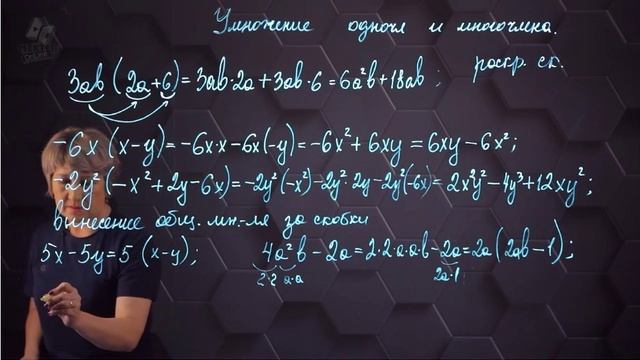 Умножение одночл и многочлена.
3ab (2a+6)=3ab·2a+3ab·6=6a²b+18ab; раскр. ск.
-6x (x-y)=-6x·x-6x(-y)=-6x²+6xy=6xy-6x²;
-2y²(-x²+2y-6x)=-2y²(-x²)-2y²·2y-2y²(-6x)=2x²y²-4y³+12xy²;
вынесение общ. мн.-ля за скобки
5x-5y=5 (x-y); 4a²b-2a=2·2·a·a·b-2a=2a(2ab-1);
2·2 a·a 2a·1